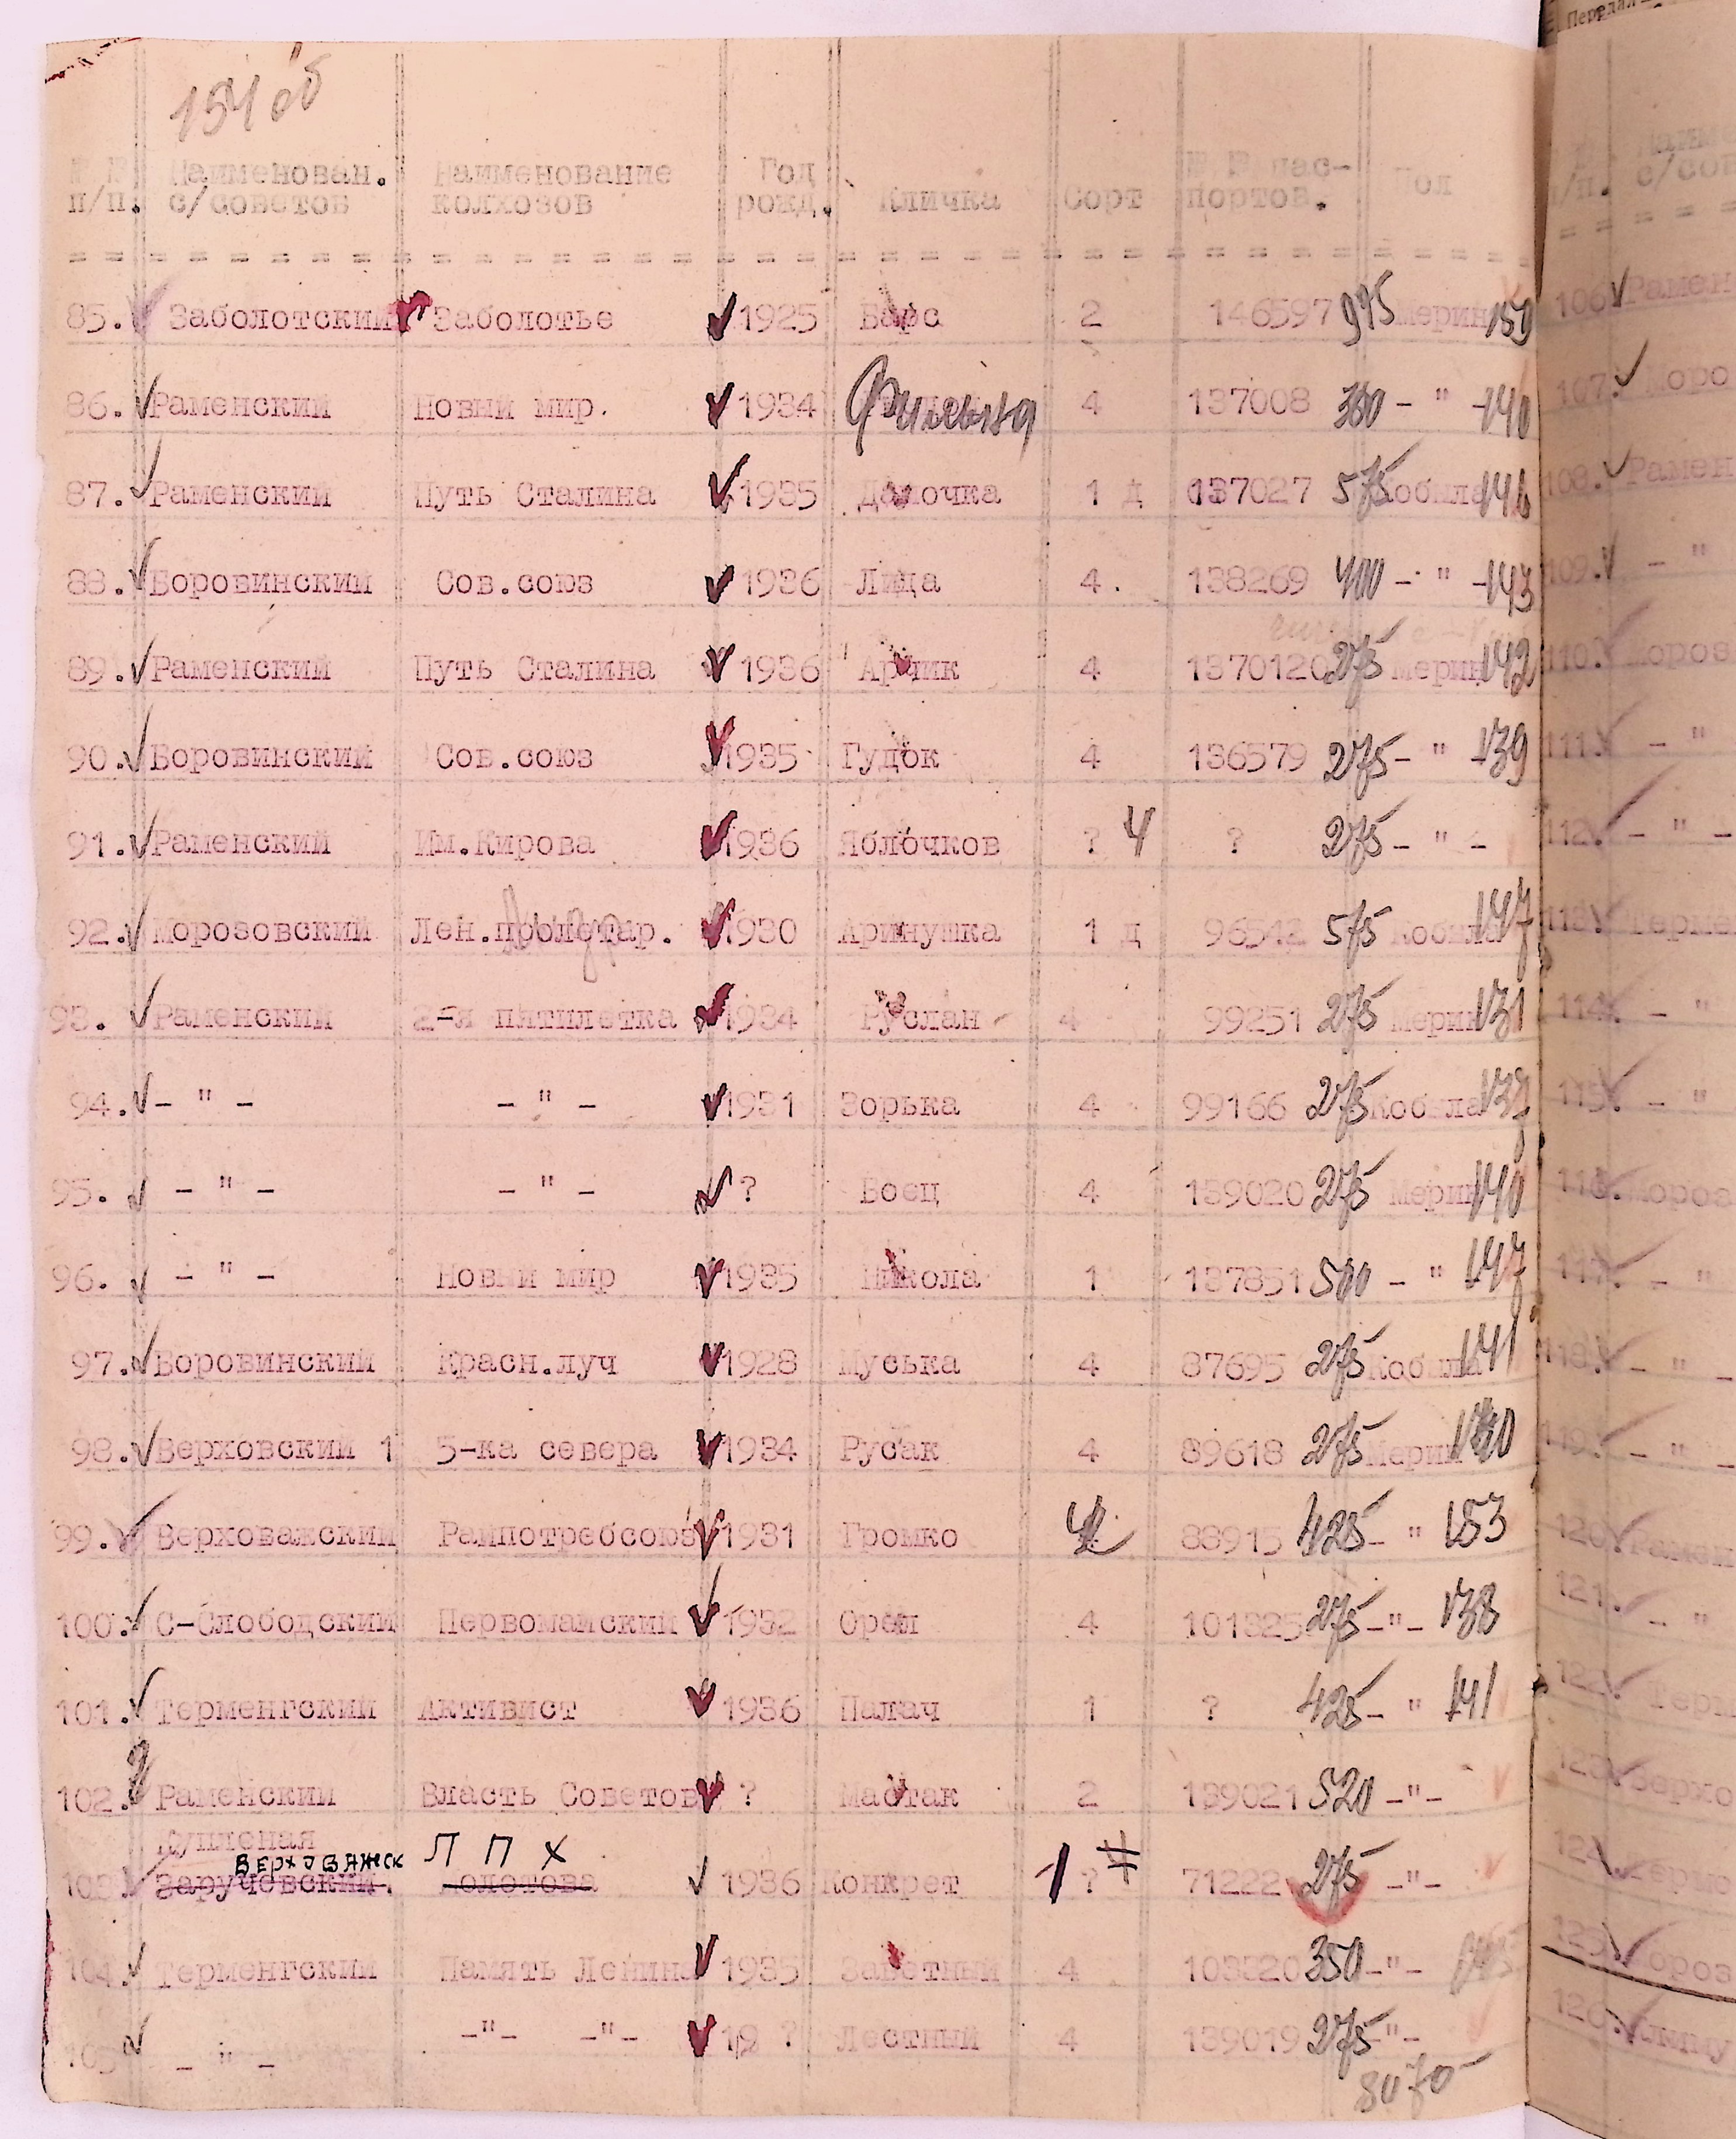 154 об
№ № Наименован. Наименование Год № № пас- Пол
п/п. с/советов колхозов рожд. Кличка Сорт портов.
85. Заболотский Заболотье 1925 Барс 2 146597 975 Мерин 150
86. Раменский Новый мир. 1934 4 137008 360 - " - 140
87. Раменский Путь Сталина 1935 Дамочка 1 д 137027 575 Кобыла 146
88. Боровинский Сов.союз 1936 Лида 4. 138269 400 - " - 143
89. Раменский Путь Сталина 1936 Арчик 4 1370120 275 Мерин 142
90. Боровинский Сов.союз 1935 Гудок 4 136579 275 - " - 139
91. Раменский Им.Кирова 1936 Яблочков ? 4 ? 275 - " -
92. Морозовский Лен.пролетар. 1930 Аринушка 1 д 96542 575 Кобыла 147
93. Раменский 2-я пятилетка 1934 Руслан 4 99251 275 Мерин 131
94. - " - - " - 1931 Зорька 4 99166 275 Кобыла
95. - " - - " - ? Боец 4 139020 275 Мерин 140
96. - " - Новый мир 1935 Никола 1 137851 500 - " 147
97. Боровинский Красн.луч 1928 Муська 4 87695 275 Кобыла 141
98. Верховский 1 5-ка севера 1934 Русак 4 89618 275 Мерин 140
99. Верховажский Райпотребсоюз 1931 Громко 88915 425 - " 153
100. С-Слободский Первомайский 1932 Орёл 4 101325 275 -"- 138
101. Терменгский Активист 1936 Палач 1 ? 425 - " 141
102. Раменский Власть Советов ? Мастак 2 139021 520 -"-
Дуплёная
Верховажск Л П Х
103. Заручевский. Молотова 1936 Конкрет 1 ? 71222 275 -"-
104. Терменгский Память Ленина 1935 Заветный 4 103320 350 -"-
105 - " - -"- -"- 19 ? Лестный 4 139019 275 -"-
8070